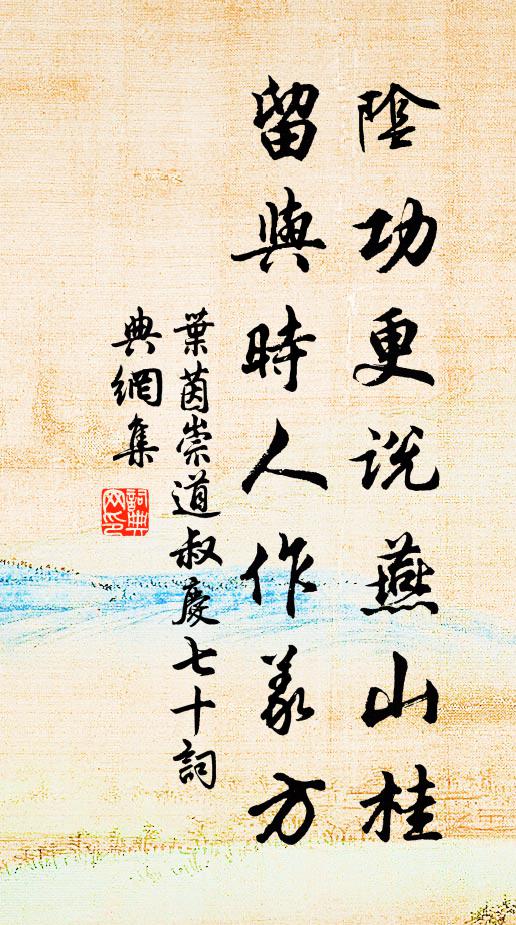 陰功更說燕山桂
留與時人作義方
葉茵崇道叔慶七十詞
典網集
詞典
网印